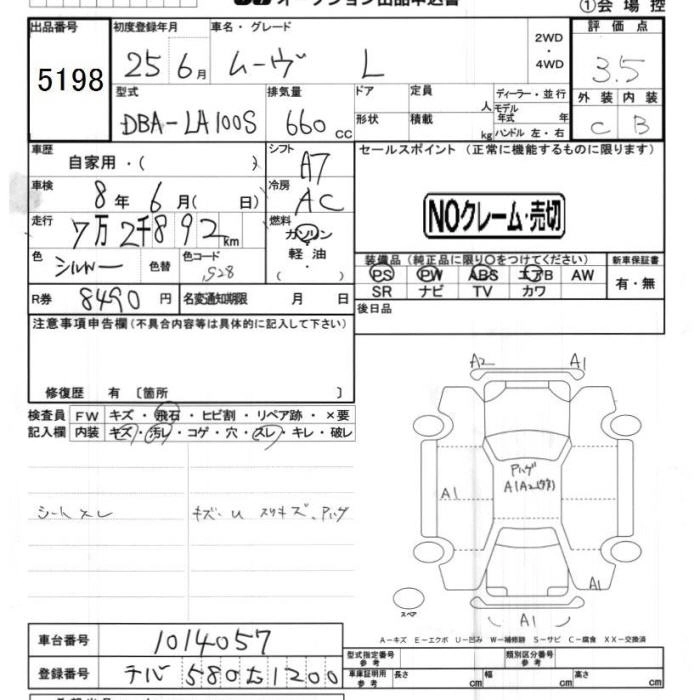 オークション出品申込書
①会場控
出品番号
5198
初度登録年月
25 6月
車名・グレード
ムーヴ L
2WD
・
4WD
評価点
3.5
型式
DBA-LA100S
排気量
660 CC
ドア
定員
人
形状
積載
kg
ディーラー・並行
モデル年式 年
ハンドル 左・右
外装 内装
C B
車歴
自家用・( )
シフト
A7
セールスポイント (正常に機能するものに限ります)
車検
8年 6月( 日)
冷房
AC
NOクレーム・売切
走行
7万2千892km
燃料
ガソリン
軽油
( ・ )
色
シルバー
色替
色コード
S28
装備品 (純正品に限り○をつけてください)
新車保証書
PS PW ABS エアB AW
SR ナビ TV カワ
有・無
R券
8490円
名変通知期限 月 日
後日品
注意事項申告欄 (不具合内容等は具体的に記入して下さい)
修復歴 有 〔箇所 〕
検査員
記入欄
FW キズ・飛石・ヒビ割・リペア跡・×要
内装 キズ・汚レ・コゲ・穴・スレ・キレ・破レ
シートスレ
キズ・U スリキズ、Pハゲ
A2 A1
Pハゲ
A1A2
A1
A1
スペア
A1
A−キズ E−エクボ U−凹み W−補修跡 S−サビ C−腐食 XX−交換済
車台番号
1014057
型式指定番号
参考
類別区分番号
参考
登録番号
チバ 580 た 1200
車庫証明用
参考
長さ cm
幅 cm
高さ cm